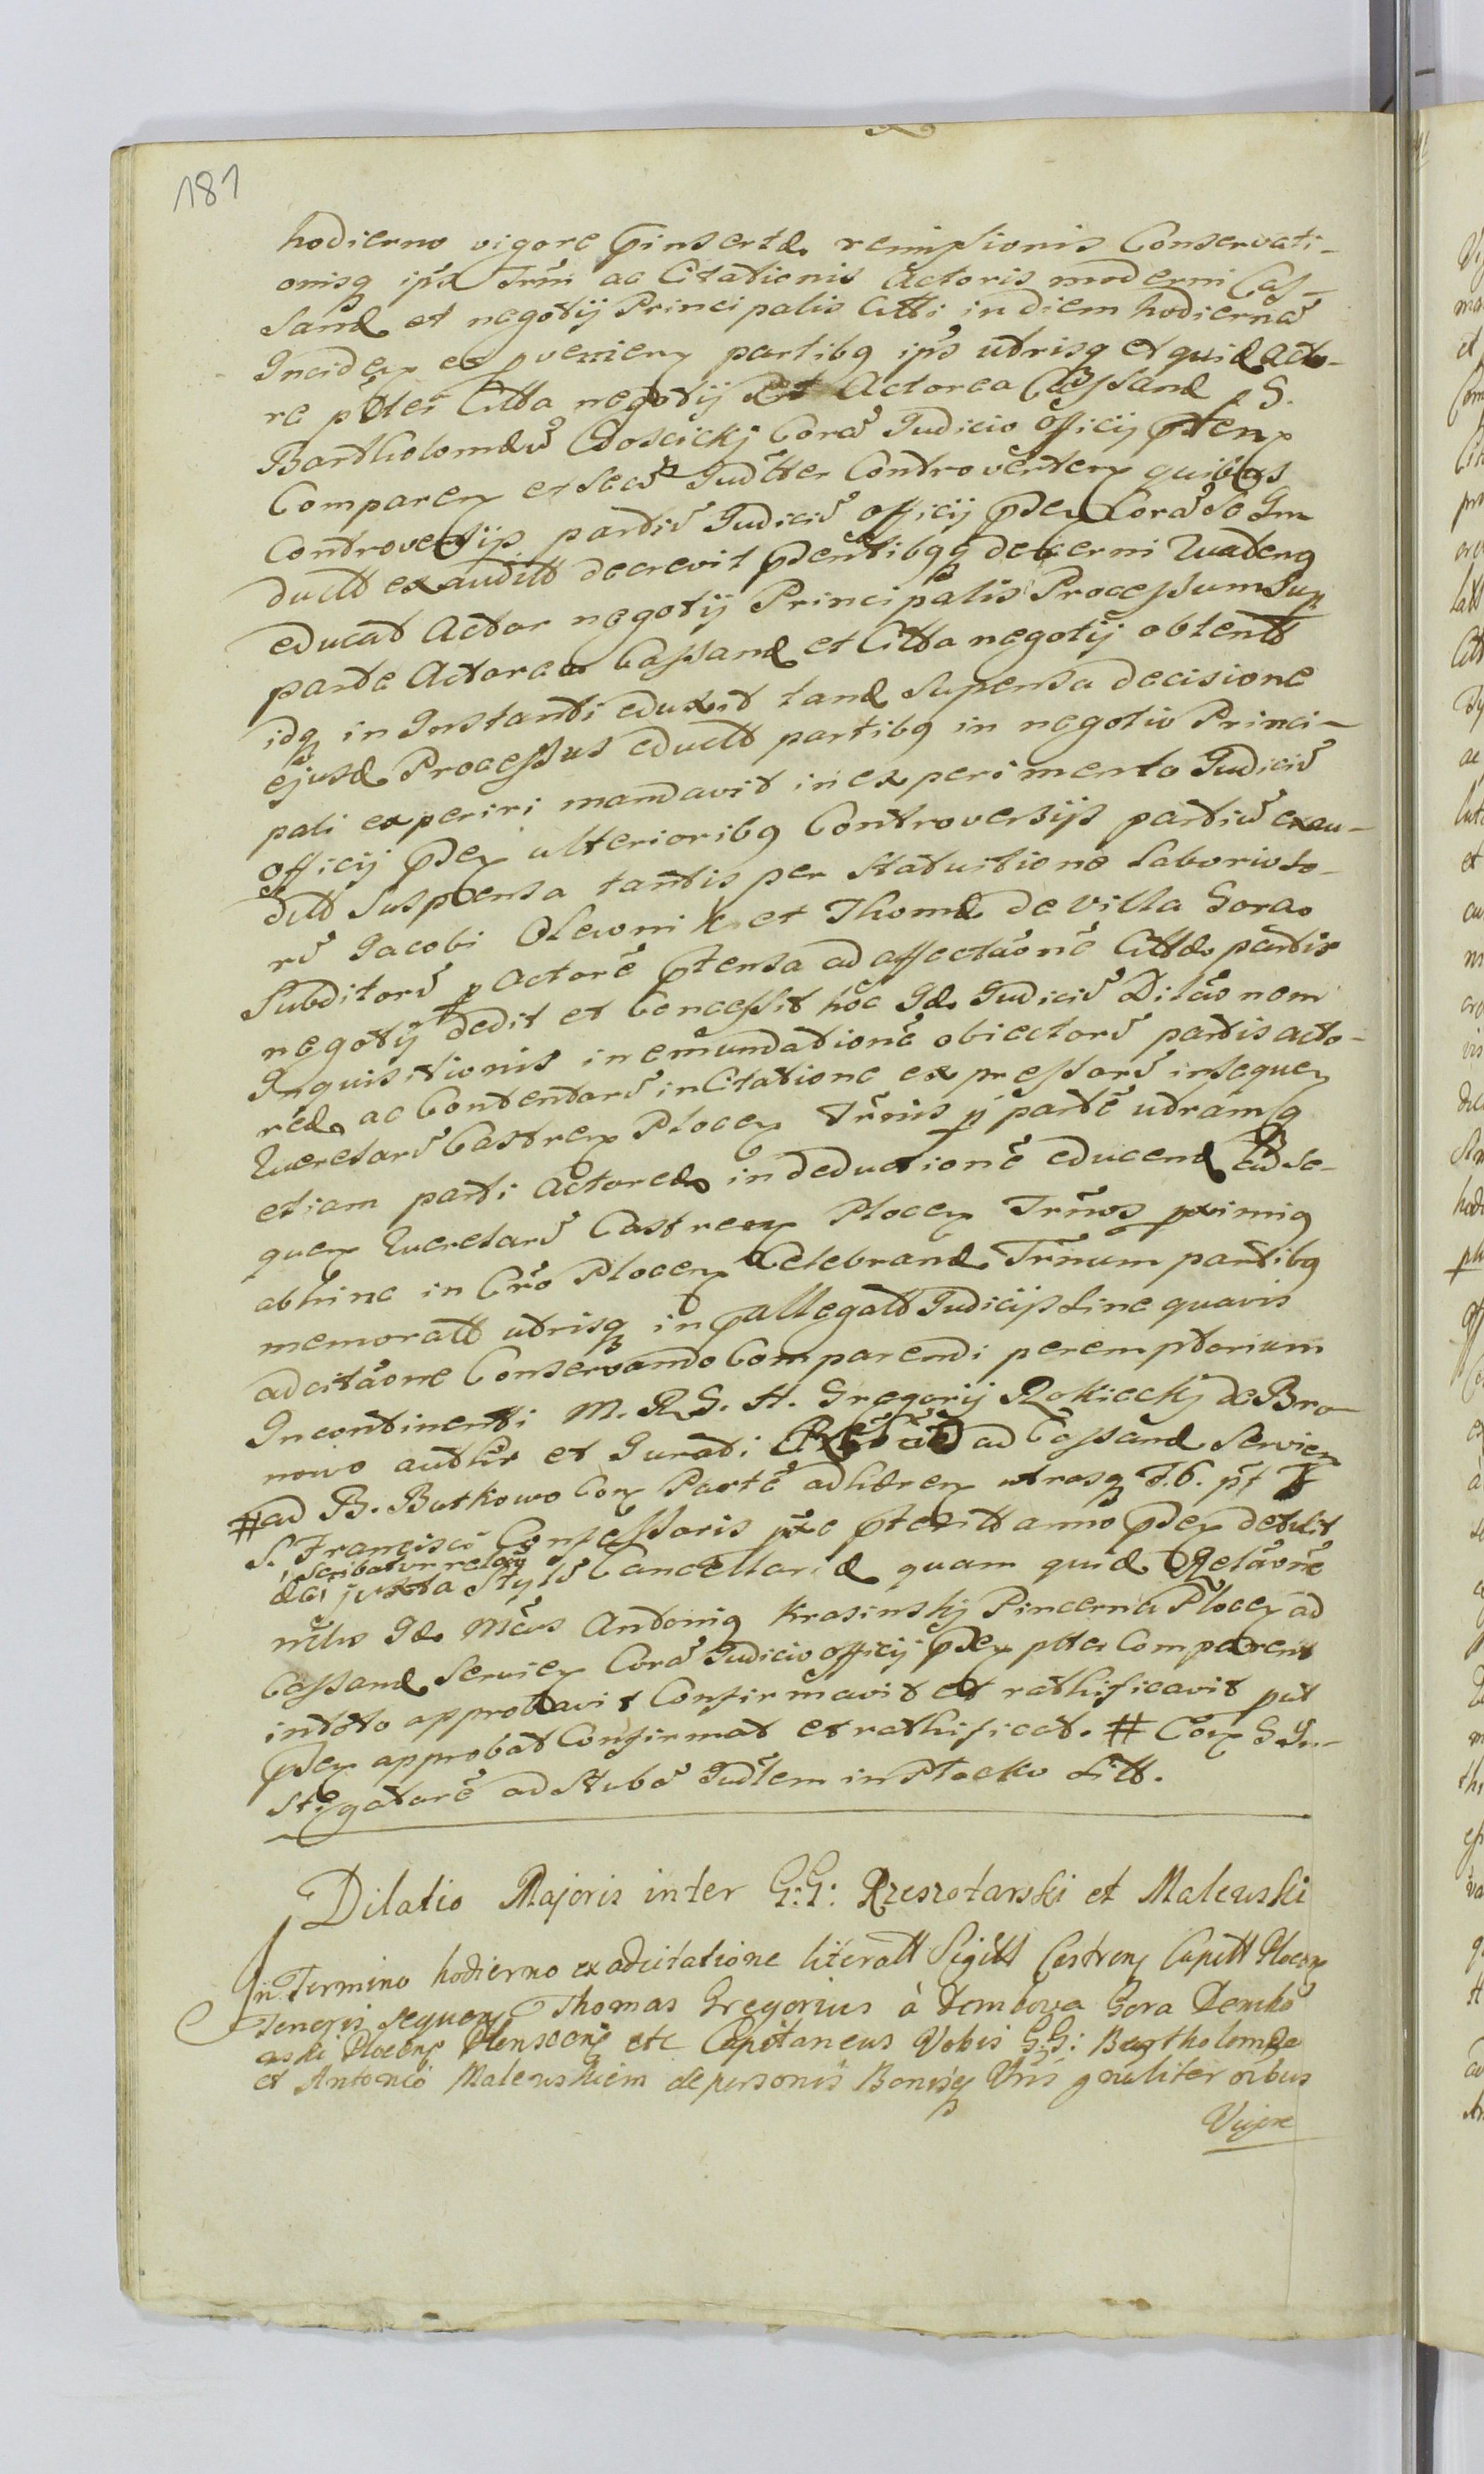 181
hodierno vigore pinsertæ remissionis Conservati-
onisq ipŝ Trm̃ ac Citationis Actoris moderni Cas-
sand et negotij Principalis Citti in diem hodiernã
Inciden et pvenien partibq ipŝ utrisq et quid Acto-
re põter Citta negotij Actorea Cassand p G.
Bartholomæũ Corã Judicio officij pten
Comparen et secũ Judr̃ter Controverten quibus
Controversijs partiũ Judiciũ officij pden Corã se In
ductt exauditt decrevit pdentibqq decerni Quatenq
educat Actor negotij Principalis Processum sup
parte Actorea Cassand et Citta negotij obtentt
idq in Instanti eduxit tand supensa decisione
ejusd Processus eductt partibq in negotio Princi-
pali experiri mandavit in experimento Judiciũ
officij pden ulterioribq Controversijs partiũ exau-
ditt suspensa tantisper statuitione Laborioso-
rũ Jacobi Olewnik et Thomæ de villa Gora
Subditorũ p Actorẽ ptensa ad affectãonẽ Cittæ partis
negotij dedit et Concessit hoc Idẽ Judiciũ Dilãonem
Inquisitionis in emundationẽ obiectorũ partis acto-
reæ ac Contentorũ in Citatione expressorũ insequen
Querelarũ Castren Plocen Trm̃is p partẽ utramq
etiam parti Actoreæ in deductionẽ educend ad se-
quen Querelarũ Castren Plocen Trm̃os pximiq
abhinc in Crõ Plocen Celebrand Trm̃um partibq
memoratt utrisq in pallegatt Judicijs sine quavis
adcitãone Conservando Comparendi peremptorium
Incontinenti M. R. G. A. Gregorij Rokicckj de Bro-
nowo autht̃r et Jurati ad Cassand Servien
# ad B. Butkowo Con Partẽ adhæren utrasq F. 6. pt
S. Francisci Confessoris pxe pteritt anno pden detulit
scribatur relaõ
juxta stylũ Cancellariæ quam quid Relãonẽ
Idẽ Mcũs Antoniq Krasinskij Pincerna Plocen ad
Cassand Servien Corã Judicio officij pden pttes Comparens
in toto approbavit Confirmavit et rathificavit put
pden approbat Confirmat et rathificat. # Con G In-
stigatorẽ ad stubã Judlem in Plocko sitt.
Dilatio Majoris inter G:G: Rzeszotarski et Malewski
In Termino hodierno ex adcitatione literatt Sigitt Castren Capitt Plocen
Tenoris sequen Thomas Gregorius à Dembowa Gora Dembo
wski Plocens Plonscens etc Capitaneus Vobis G:G: Bartholomæo
et Antonio Malewskiem de personis Bonisq Vr̃is gn̄aliter oĩbus
Vigore